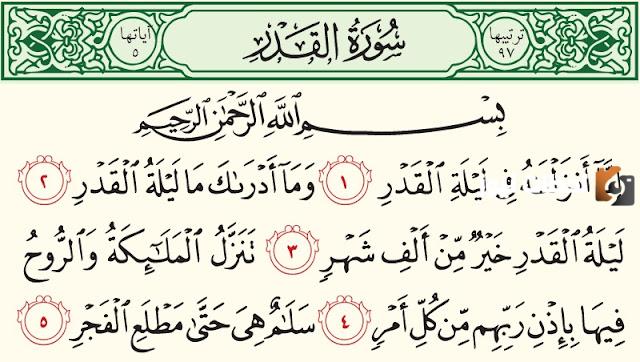 ترتيبها ٩٧
سُورَةُ الْقَدْرِ
آياتها ٥
بِسْمِ اللَّهِ الرَّحْمَٰنِ الرَّحِيمِ
أَنزَلْنَٰهُ فِي لَيْلَةِ الْقَدْرِ ١ وَمَآ أَدْرَىٰكَ مَا لَيْلَةُ الْقَدْرِ ٢
لَيْلَةُ الْقَدْرِ خَيْرٌ مِّنْ أَلْفِ شَهْرٍ ٣ تَنَزَّلُ الْمَلَٰٓئِكَةُ وَالرُّوحُ
فِيهَا بِإِذْنِ رَبِّهِم مِّن كُلِّ أَمْرٍ ٤ سَلَٰمٌ هِيَ حَتَّىٰ مَطْلَعِ الْفَجْرِ ٥